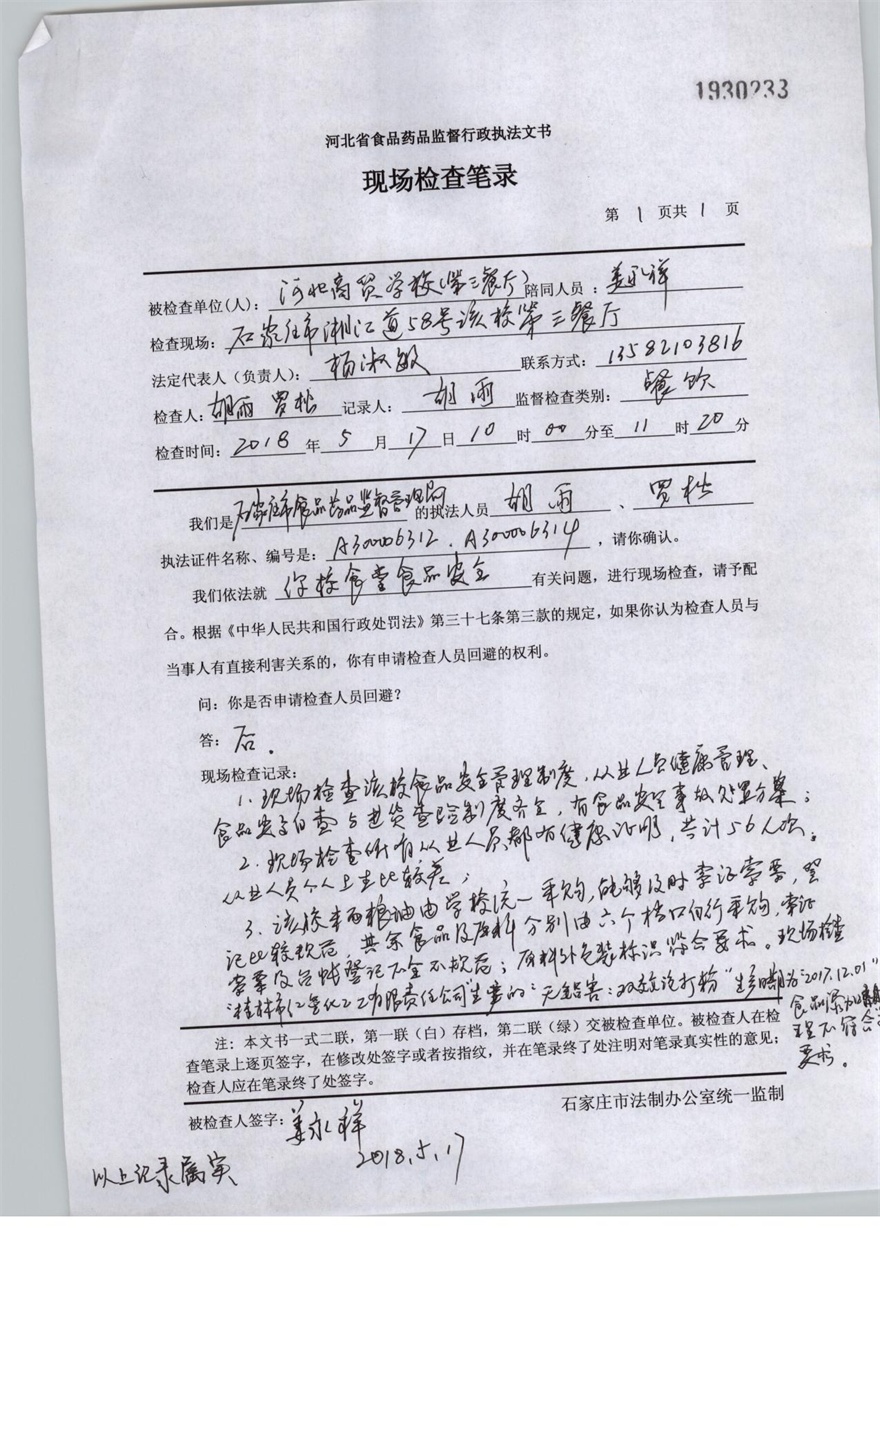 1930233
河北省食品药品监督行政执法文书
现场检查笔录
第 1 页共 1 页
被检查单位(人)：河北商贸学校(第三餐厅) 陪同人员：姜永祥
检查现场：石家庄市湘江道58号该校第三餐厅
法定代表人（负责人）：杨淑敏 联系方式：13582103816
检查人：胡雨 罗松 记录人：胡雨 监督检查类别：餐饮
检查时间：2018年5月17日10时00分至11时20分
我们是石家庄市食品药品监督管理局的执法人员胡雨、罗松
执法证件名称、编号是：A30006312．A300006314，请你确认。
我们依法就 你校食堂食品安全 有关问题，进行现场检查，请予配
合。根据《中华人民共和国行政处罚法》第三十七条第三款的规定，如果你认为检查人员与
当事人有直接利害关系的，你有申请检查人员回避的权利。
问：你是否申请检查人员回避？
答：否．
现场检查记录：
1．现场检查该校食品安全管理制度，从业人员健康管理、
食品安全自查与进货查验制度齐全，有食品安全事故处置方案；
2．现场检查所有从业人员都有健康证明，共计56人次。
从业人员个人卫生比较差；
3．该校米面粮油由学校统一采购，能够及时索证索票，登
记比较规范，其余食品及原料分别由六个档口自行采购，索证
索票及台帐登记不全不规范；原料外包装标识符合要求。现场检查
"桂林市红星化工有限责任公司"生产的"无铝害：双效泡打粉"生产日期为"2017.12.01"
食品添加剂
管理不符合
要求。
注：本文书一式二联，第一联（白）存档，第二联（绿）交被检查单位。被检查人在检
查笔录上逐页签字，在修改处签字或者按指纹，并在笔录终了处注明对笔录真实性的意见；
检查人应在笔录终了处签字。
石家庄市法制办公室统一监制
被检查人签字：姜永祥
2018.5.17
以上记录属实